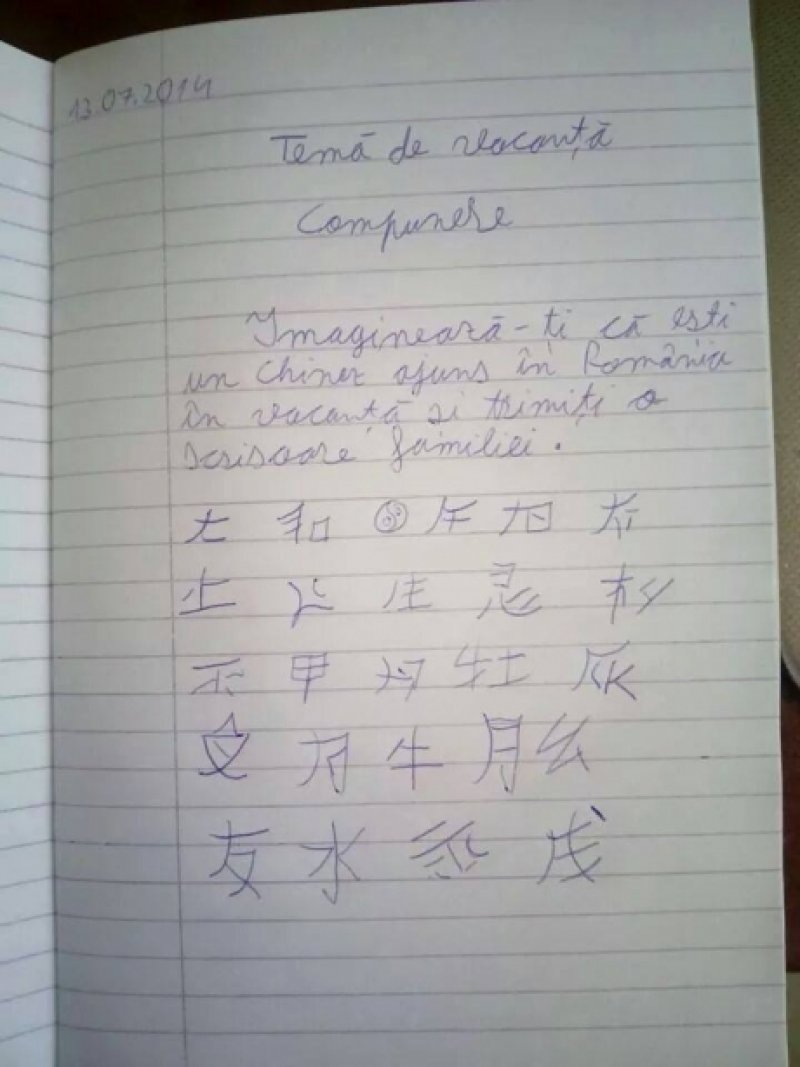 13.07.2014
Temă de vacanță
Compunere
Imaginează-ți că ești
un chinez ajuns în România
în vacanță si trimiți o
scrisoare familiei.
大 和 午 旭
止 生 忌 杉
不 甲 牡
牛 月 幺
友 水 戊